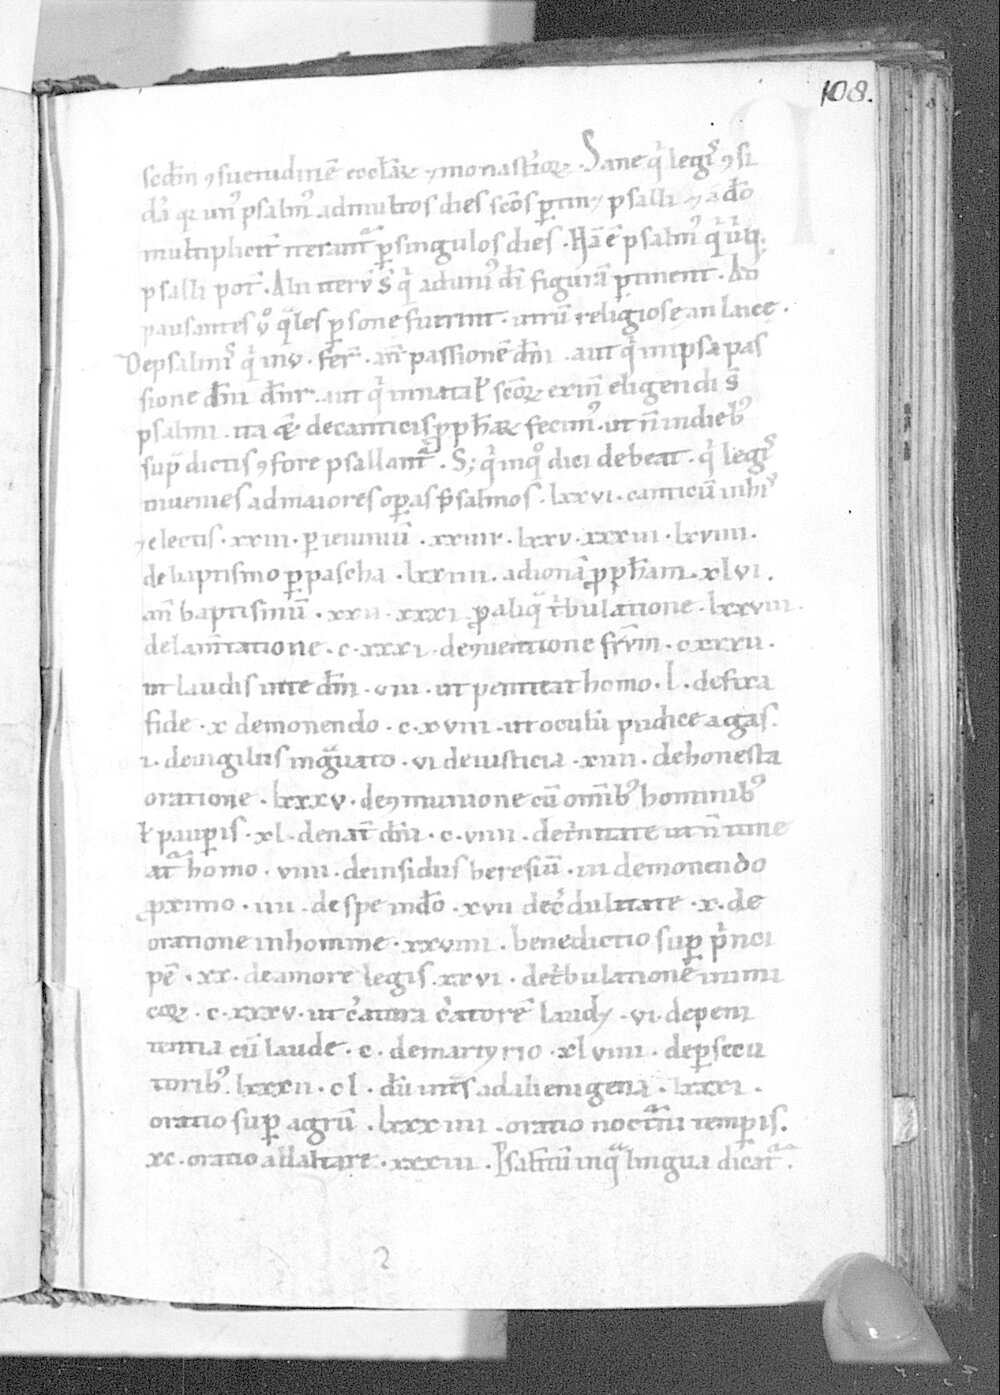 108.
scdm ꝯsuetudinē eccƚaꝝ ⁊ monasterioꝝ. Sane qͥ legis ꝯsi
dā qꝛ unꝰ psalmꝰ ad multos dies scōs ꝑtin⁊ psalli ⁊ a dō
multiplicit iterant ꝑ singulos dies. psalmꝰ
psalli pot. Alii figurā ꝑtinent. Ad
pausantes qͣles ꝑsone fuerint. utrū religiose an laice.
De psalmis qͥ in v. fer. an passionē dm̄. aut qͥ in ipsa pas
sione dn̄i aut qͥ in nataƚ scōꝝ eligendi s̄
psalmi. ita de canticis ꝓphaꝝ fecimꝰ. ut n̄ in diebꝰ
supdictis ꝯfore psallant. S; qͥ in qͦ dici debeat. qͥ legis
inuenies ad maiores opas psalmos. lxxvi. canticū in his
⁊electis. xxiii. ꝑ ieiuniū. xxiiii. lxxv. xxxvi. lxviiii.
de baptismo ꝑ pascha. lxxiiii. ad ionā ꝓpham. xlvi.
an̄ baptismū. xxii. xxxi. ꝓ aliqͣ tͥbulatione. lxxviii.
de lam̄tatione. c.xxxi. de ꝯuentione frm̄. cxxxii.
ut laudis inte dm̄. viii. ut peniteat homo. l. de fixa
fide. x de monendo. c.xviii. ut oculū pudice agas.
i. de uigiliis in gͣuato. vi de iusticia. xiiii. de honesta
oratione. lxxxv. de ꝯmunione cū omībꝰ hominibꝰ
ƚ pauꝑis. xl. de nat̄ dm̄i. c.viiii. de tͥnitate ut n̄ time
at homo. viiii. de insidiis heresiū. iii de monendo
ꝓximo. iiii. de spe in dō. xvii de cͥdulitate. x. de
oratione in homine. xxviiii. benedictio suꝑ pͥnci
pē. xx. de amore legis. xxvi. de tͥbulationē inimi
coꝝ. c.xxxv. ut cͥatura cͥatorē laud⁊. vi. de peni
tentia cū laude. c. de martyrio. xlviiii. de ꝑsecu
toribꝰ. lxxxii. cl. dū int̄s ad alienigena. lxxxi.
oratio suꝑ agrū. lxxxiiii. oratio nocturni temꝑis.
xc. oratio al altare. xxxiii. Psaltiū in qͣ lingua dicat.